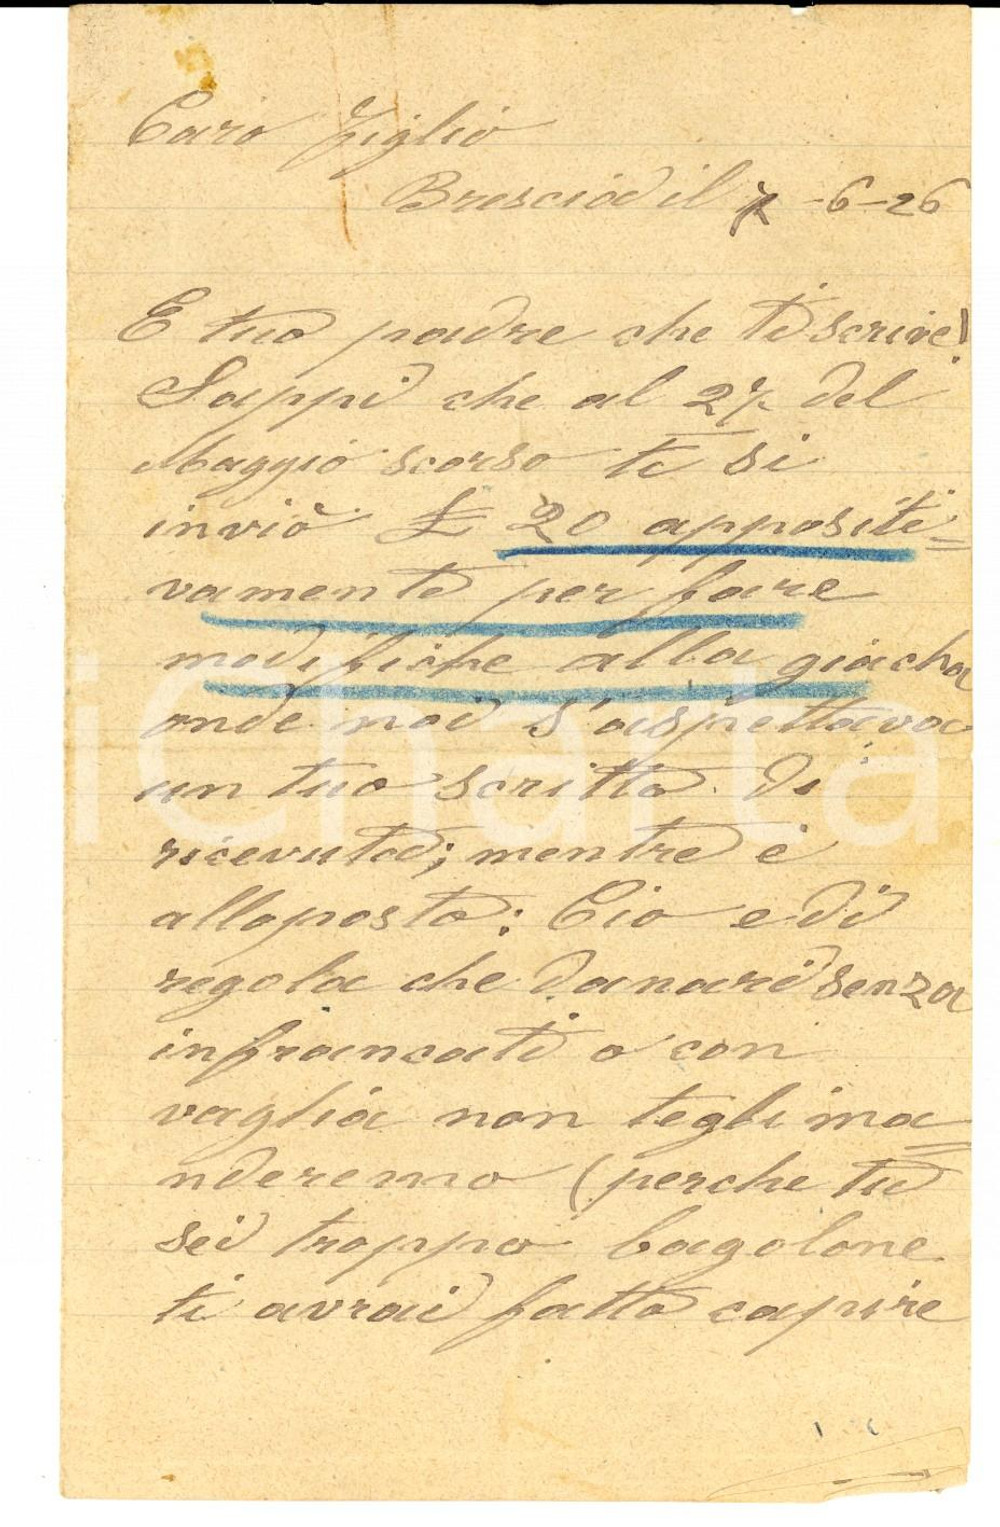 Caro Figlio
Brescia il 7 -6-26
E tuo padre che ti scrive!
Sappi che al 27 del
Maggio scorso te si
inviò £ 20 appositi=
vamente per fare
modifiche alla giacha
onde noi s'aspettava
un tuo scritto di
ricevuta; mentre è
alloposto: Cio e di
regola che danari senza
infrancati o con
vaglia non tegli ma=
nderemo (perche tu
sei troppo bagolone
ti avrai fatto capire
iCharta